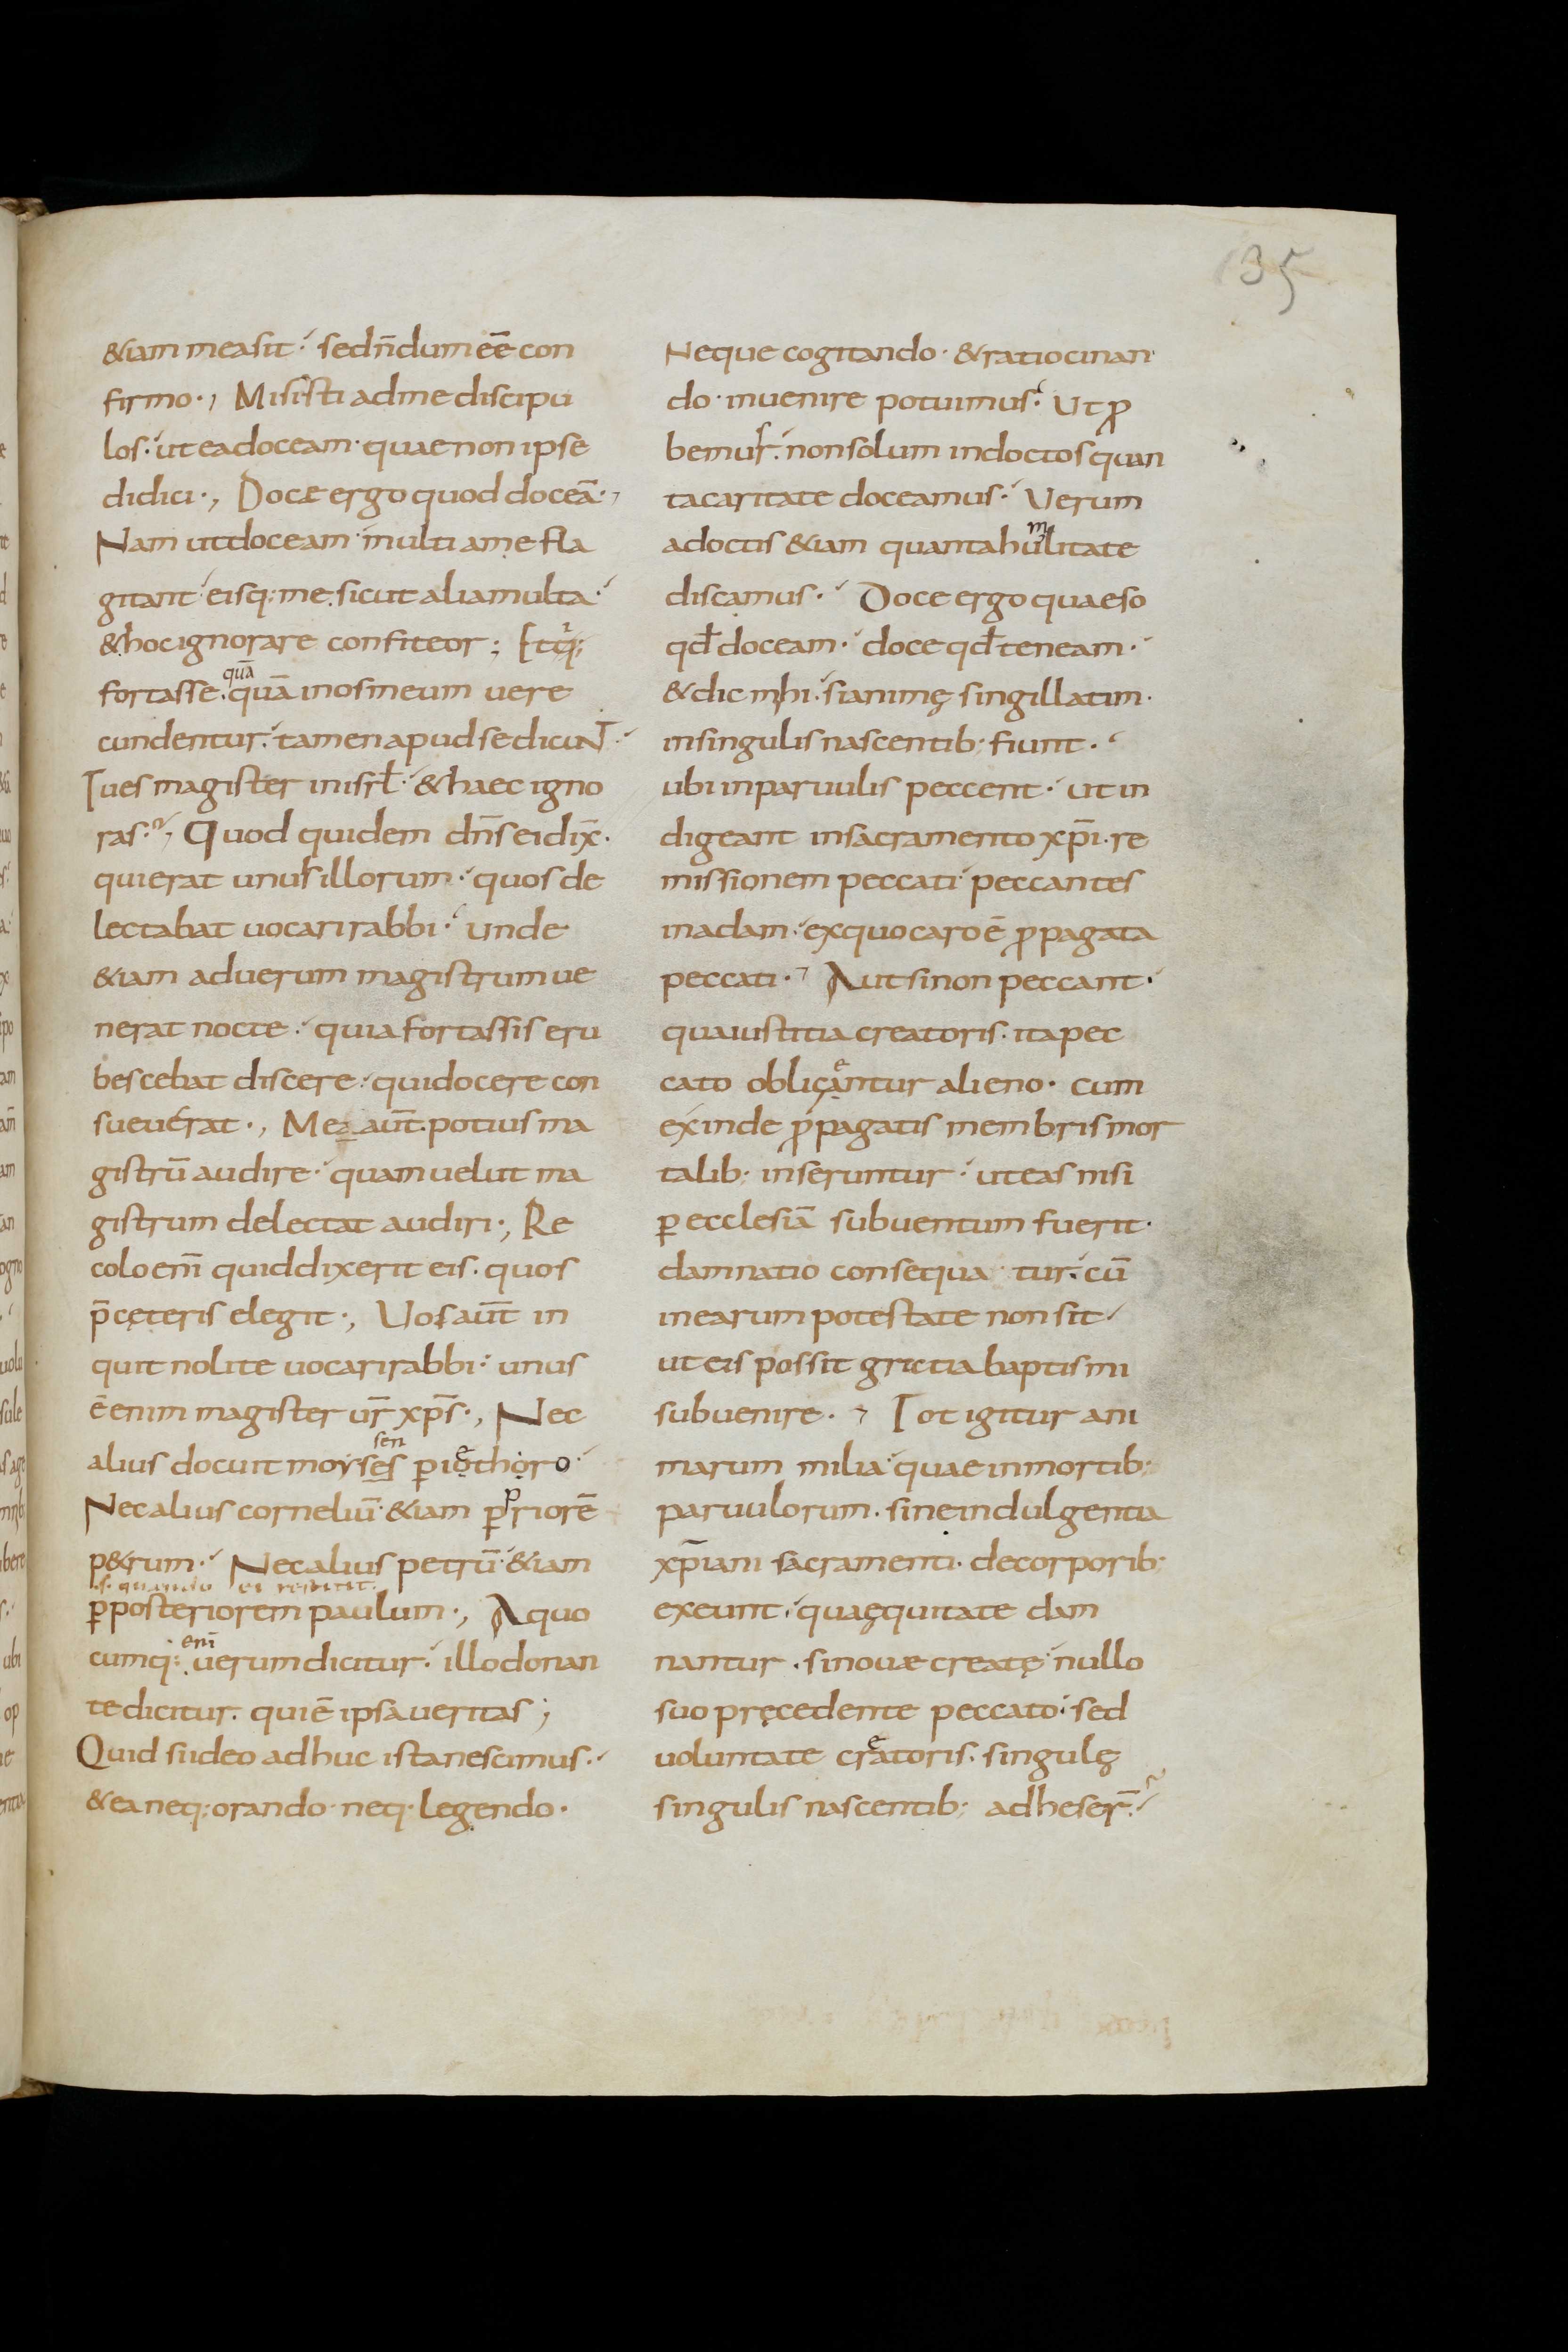 135
&iam mea sit · sed n̄dum eē̄ con
firmo ., Misisti ad me discipu
los · ut ea doceam · quae non ipse
didici ., Doce ergo quod doceā .,
Nam ut doceam multi a me fla
gitant eisq; me sicut alia multa ·
& hoc ignorare confiteor ;
quā
fortasse · quā in os meum uere
cundentur · tamen apud se dicuNT ·
Tu es magister in isrl̄ · & haec igno
ras · Quod quidem dn̄s ei dix̄ ·
qui erat unus illorum · quos de
lectabat uocari rabbi · unde
&iam ad uerum magistrum ue
nerat nocte · quia fortassis eru
bescebat discere · qui docere con
sueuerat ., Me aūt potius ma
gistrū audire · quam uelut ma
gistrum delectat audiri ., Re
colo enī quid dixerit eis · quos
p̄ cęteris elegit ., Uos aūt in
quit nolite uocari rabbi · unus
ē enim magister ur̄ xp̄s ., Nec
sen
alius docuit moysés p iothoro ·
Nec alius corneliū · &iam p priorē
p&rum · Nec alius petrū · &iam
s· quando ei restitit ·
p posteriorem paulum ., A quo
enī
cumq; uerum dicitur · illo donan
te dicitur · qui ē ipsa ueritas ;
Quid si ideo adhuc ista nescimus ·
& ea neq; orando neq· legendo ·
Neque cogitando · & ratiocinan
do · inuenire potuimus · Ut ꝓ
bemur · non solum indoctos quan
ta caritate doceamus · Verum
m
a doctis &iam quanta hulitate
discamus · Doce ergo quaeso
qd̄ doceam · doce qd̄ teneam ·
& dic mhi · si animę singillatim ·
in singulis nascentib; fiunt ·
ubi in paruulis peccent · ut in
digeant in sacramento xp̄i · re
missionem peccati peccantes
in adam · ex quo caro ē ꝓpagata
peccati · Aut si non peccant ·
qua iustitia creatoris · ita pec
cato obligantur alieno · cum
exinde ꝓpagatis membris mor
talib; inseruntur · ut eas nisi
p ecclesiā subuentum fuerit ·
damnatio consequa tur · cū
in earum potestate non sit
ut eis possit gratia baptismi
subuenire · Tot igitur ani
marum milia · quae in mortib;
paruulorum · sine indulgentia
xp̄iani sacramenti · de corporib;
exeunt · qua ęquitate dam
nantur · si nouæ creatę nullo
suo pręcedente peccato · sed
uoluntate creatoris · singulę
singulis nascentib; adheser̄ ·